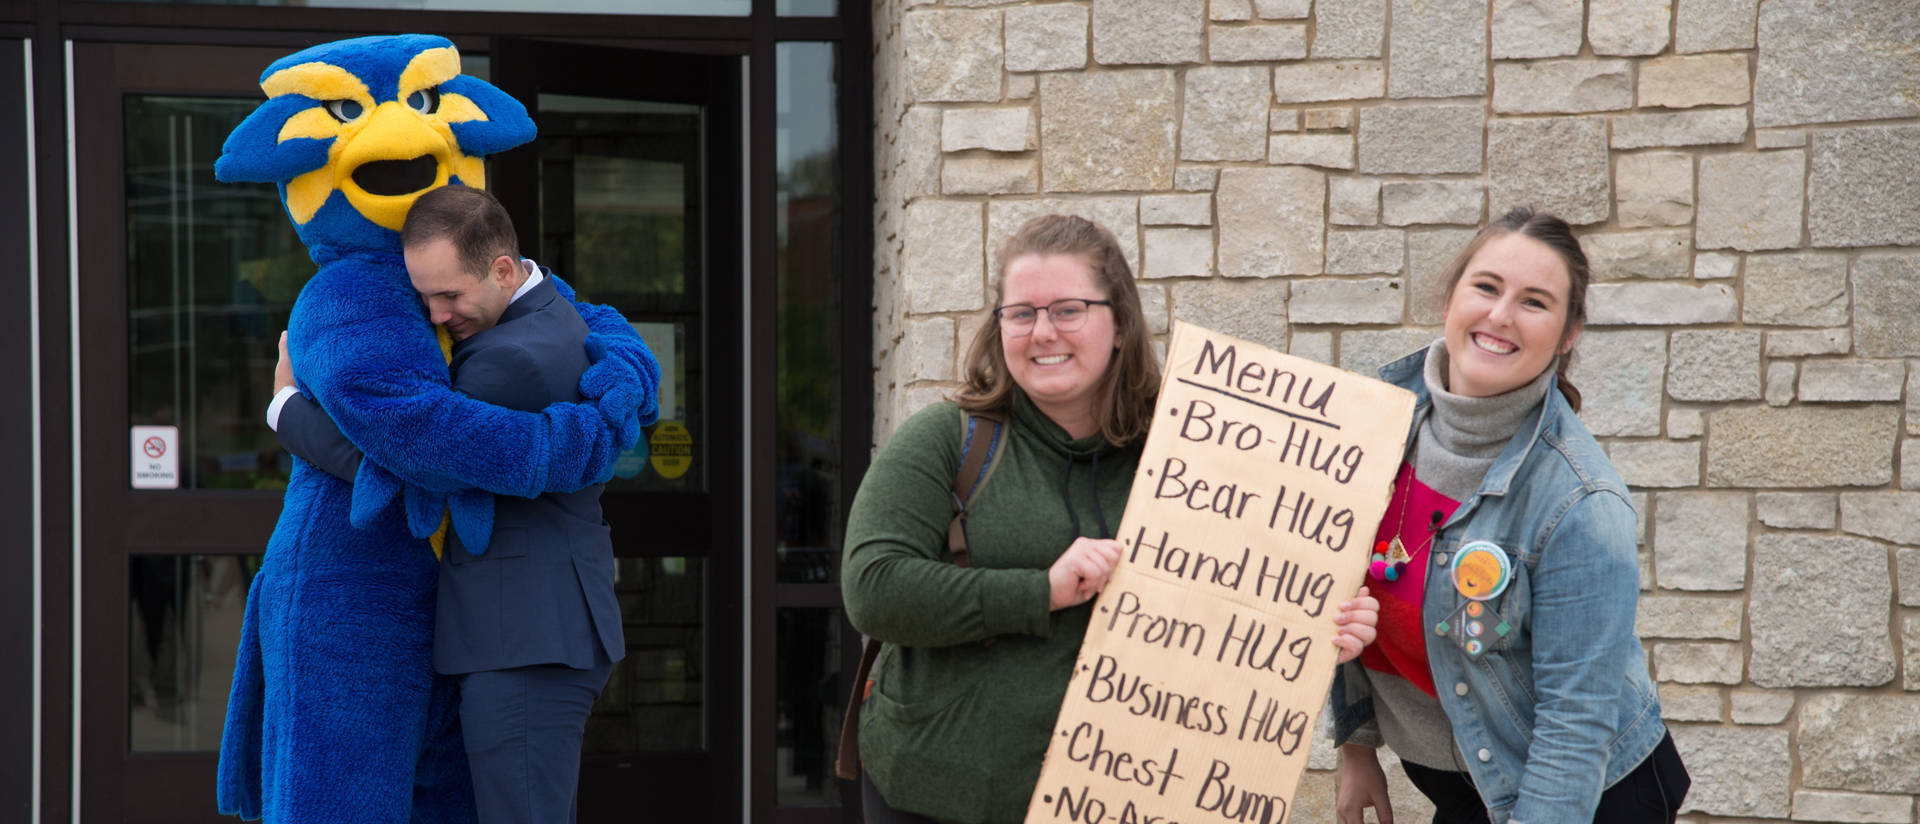 NO
SMOKING
AUTOMATIC
CAUTION
DOOR
Menu
• Bro-Hug
• Bear Hug
• Hand Hug
• Prom HUg
• Business Hug
• Chest Bump